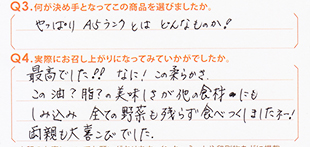 Q3.何が決め手となってこの商品を選びましたか。
やっぱり A5ランクとは どんなものか?
Q4.実際にお召し上がりになってみていかがでしたか。
最高でした!! なに!この柔らかさ。
この油?脂?の美味しさが他の食材にも
しみ込み 全ての野菜も残らず食べつくしましたヨー!
両親も大喜びでした。